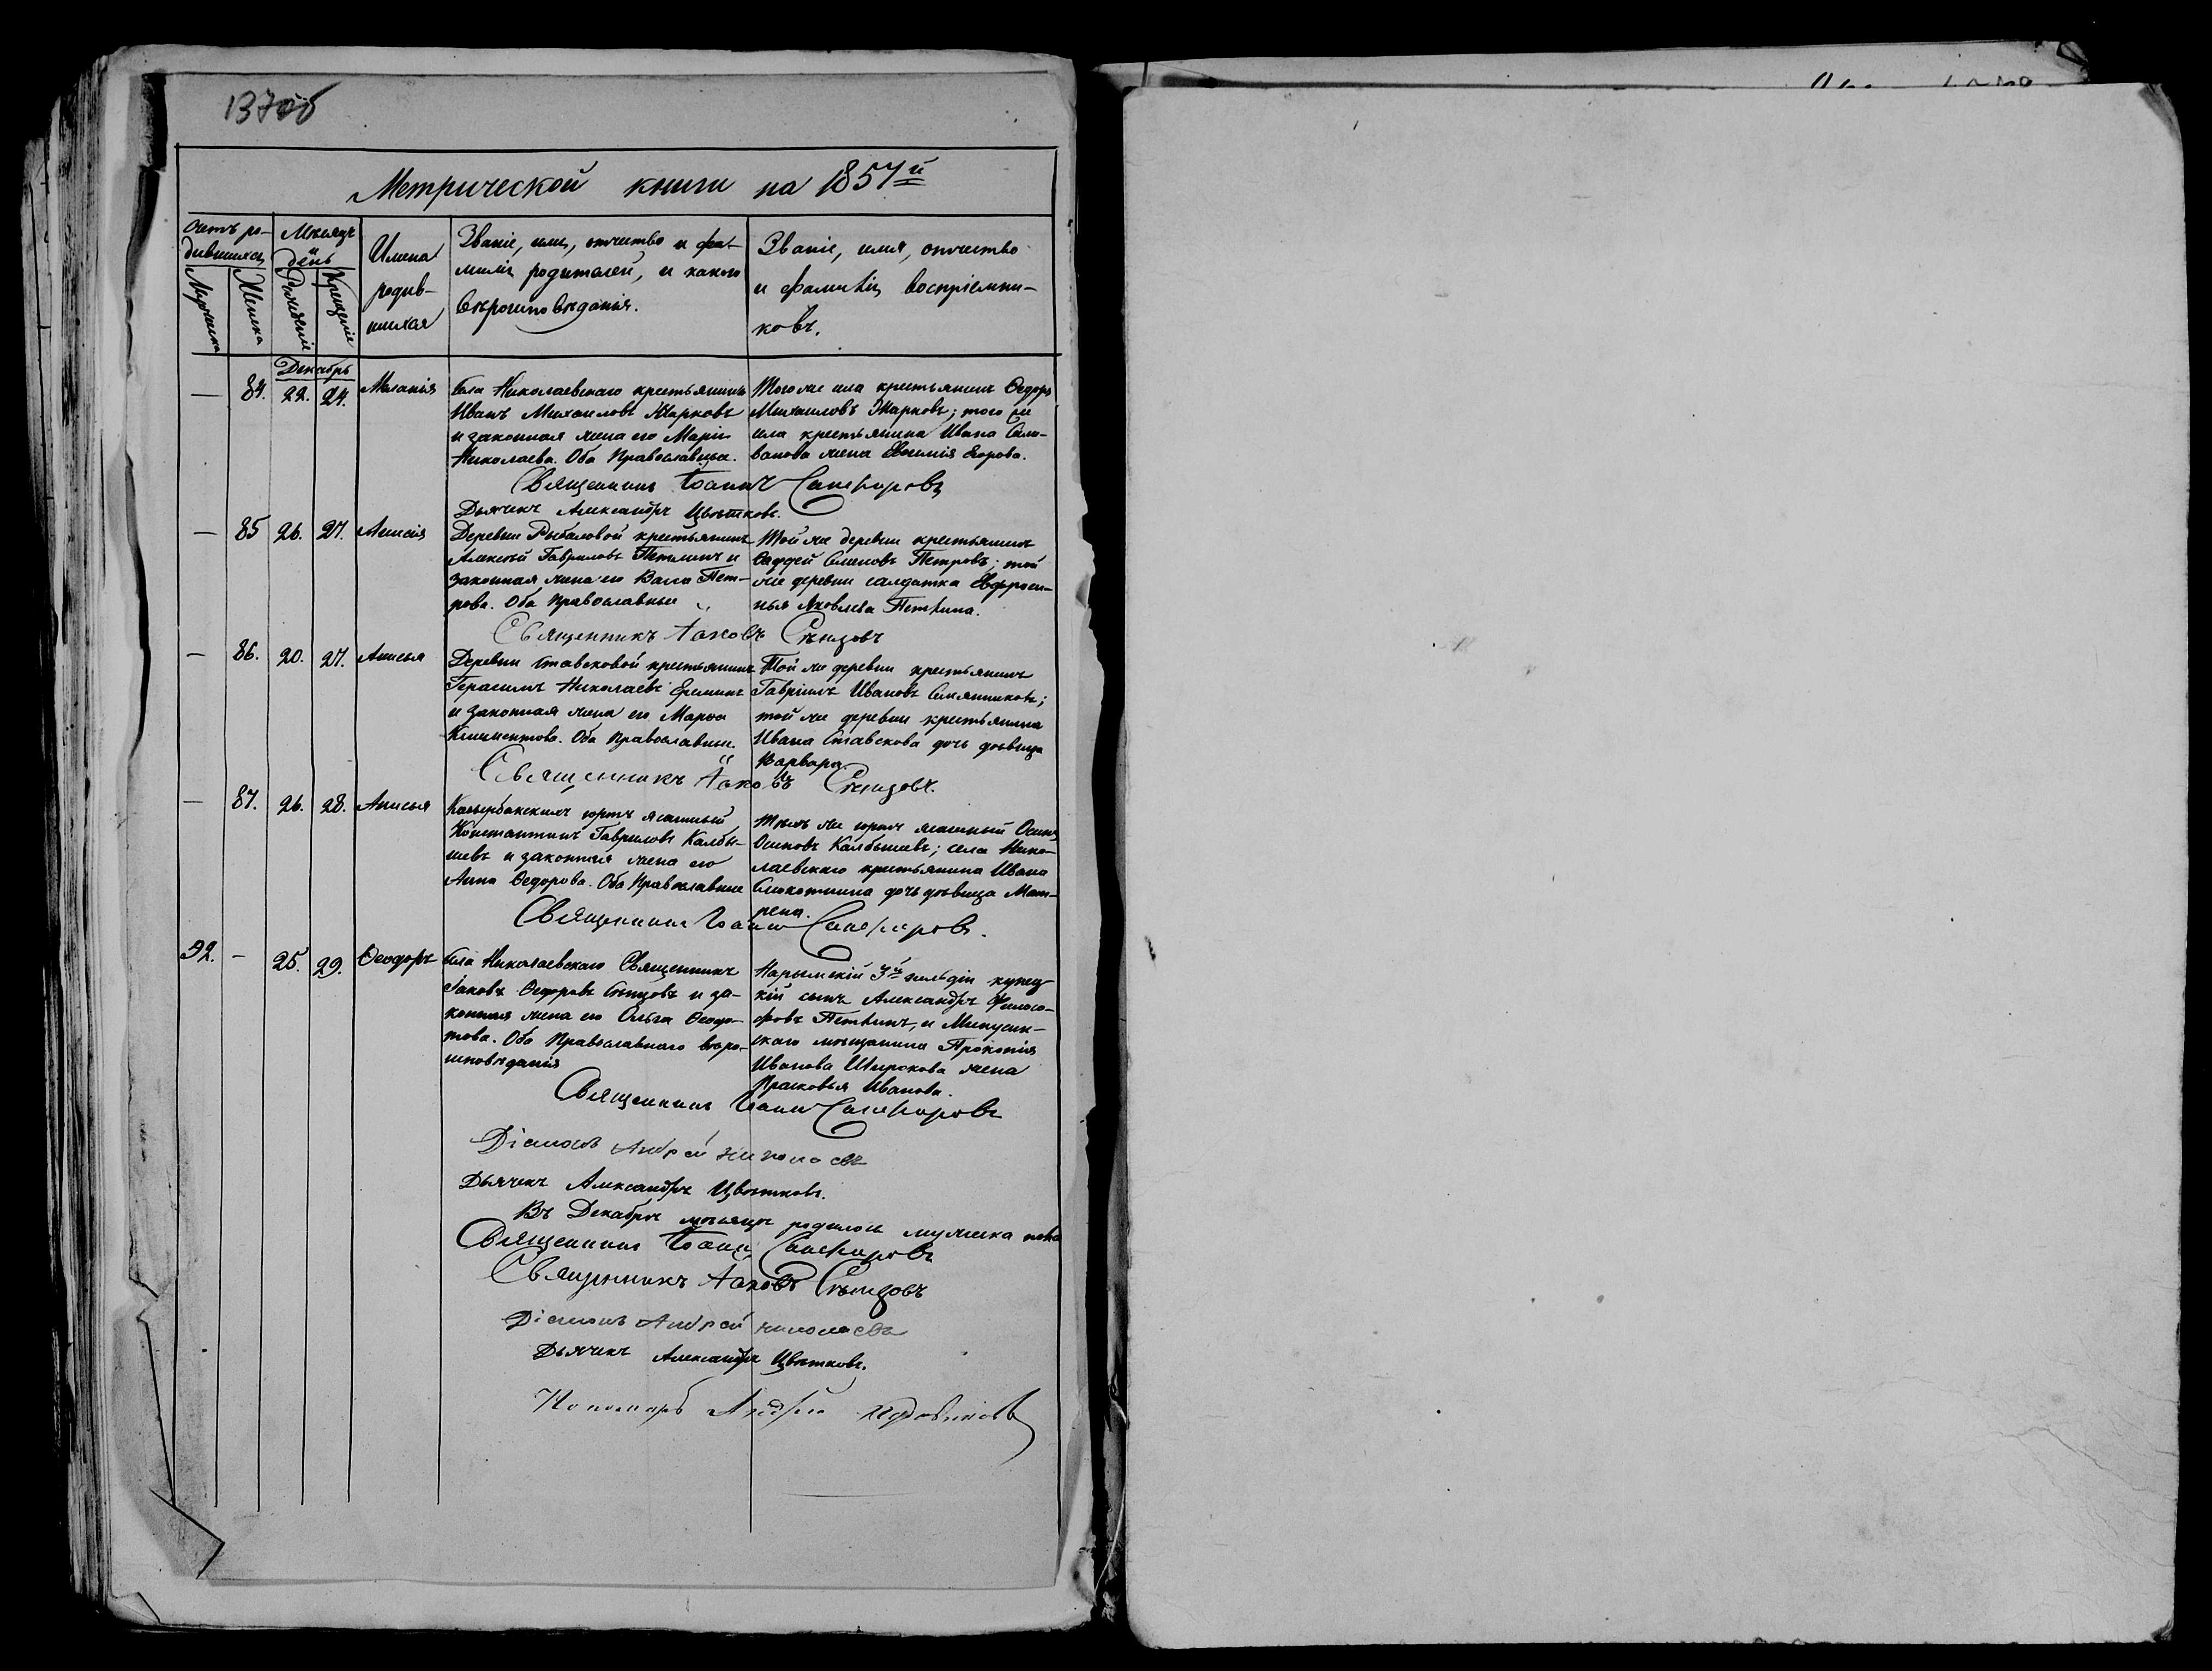 137об
Метрической книги на 1857й
Счетъ ро-
дившихся
Мужеска
Женска
Мѣсяцъ
и
день
Рожденіе
Крещеніе
Имена
родив-
шихся
Званіе, имя, отчество и фа-
милія родителей, и какого
вѣроисповѣданія.
Званіе, имя, отчество
и фамилія воспріемни-
ковъ.
Декабрь
— 84. 22. 24. Меланія
Села Николаевскаго крестьянинъ
Иванъ Михаиловъ Жарковъ
и законная жена его Марія
Николаева. Оба Православные.
Того же села крестьянинъ Ѳедоръ
Михаиловъ Жарковъ; того же
села крестьянина Ивана Сели-
ванова жена Евѳимія Егорова.
Священникъ Іоаннъ
Дьячекъ Александръ Цвѣтковъ.
— 85 26. 27. Анисія
Деревни Рыбаловой крестьянинъ
Алексѣй Гавриловъ Петлинъ и
законная жена его Васса Пет-
рова. Оба Православные
Той же деревни крестьянинъ
Ѳаддей Семеновъ Петровъ; той
же деревни салдатка Евфроси-
нья Яковлева Петлина.
Священникъ Іаковъ Сѣнцовъ
— 86. 20. 27. Анисья
Деревни Ставсковой крестьянинъ
Герасимъ Николаевъ Ереминъ
и законная жена его Марѳа
Климентова. Оба Православные.
Той же деревни крестьянинъ
Гавріилъ Ивановъ
той же деревни крестьянина
Ивана Ставскова дочь дѣвица
Варвара.
Священникъ Іаковъ Сѣнцовъ.
— 87. 26. 28. Анисья
юртъ ясашный
Константинъ Гавриловъ Калбы-
шевъ и законная жена его
Анна Ѳедорова. Оба Православные
Тѣхъ же юртъ ясашный Осипъ
Осиповъ Калбышевъ; села Нико-
лаевскаго крестьянина Ивана
Слокотнина дочь дѣвица Мат-
рена.
Священникъ Іоаннъ
92. - 25. 29. Ѳеодоръ
Села Николаевскаго Священникъ
Іаковъ Ѳедоровъ Сѣнцовъ и за-
конная жена его Ольга Ѳеодо-
това. Оба Православнаго вѣро-
исповѣданія
Нарымскій 3й гильдіи купец-
кій сынъ Александръ Филосо-
фовъ Петлинъ, и Минусин-
скаго мѣщанина Прокопія
Иванова Широкова жена
Прасковья Иванова.
Священникъ Іоаннъ
Діаконъ Андрей Николаевъ
Дьячекъ Александръ Цвѣтковъ.
Въ Декабрѣ мѣсяцѣ родилось мужеска пола
Священникъ Іоаннъ
Священникъ Іаковъ Сѣнцовъ
Діаконъ Андрей Николаевъ
Дьячекъ Александръ Цвѣтковъ.
Пономарь Андрей